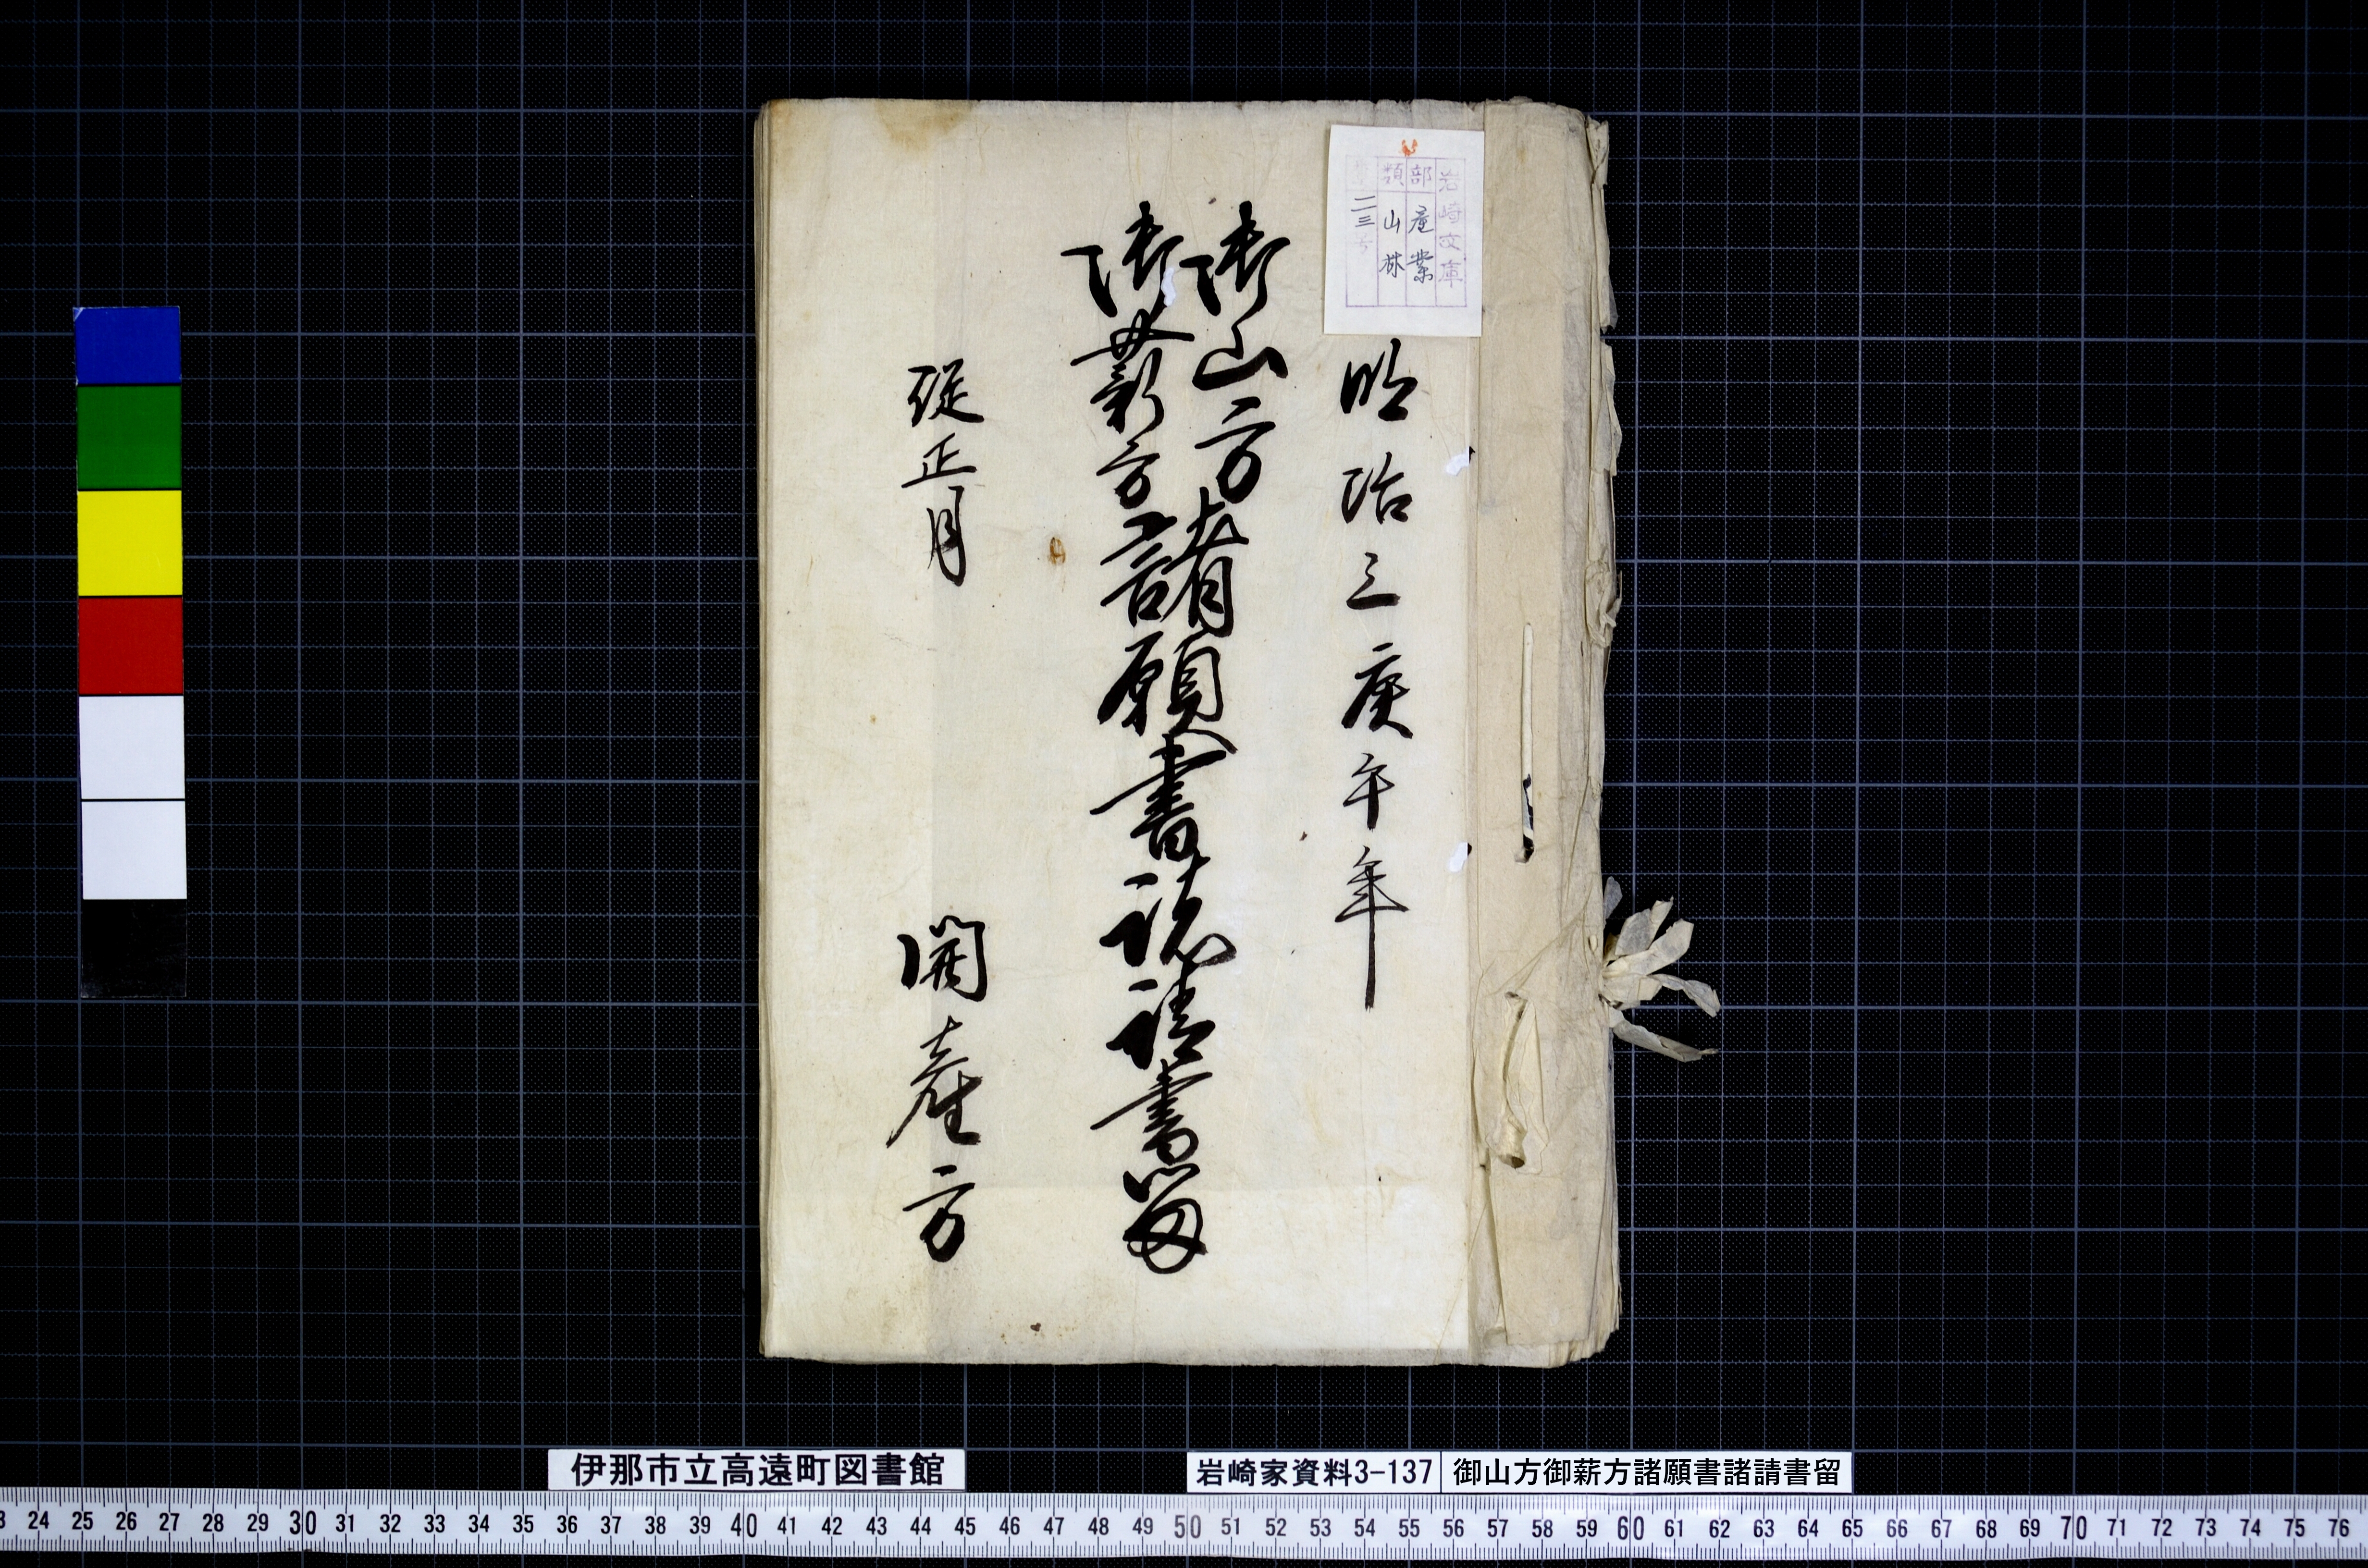 岩崎文庫
部 産業
類 山林
二三号
明治三庚午年
御山方
御薪方
諸願書諸請書留
従正月
開産方
伊那市立高遠町図書館
岩崎家資料3-137
御山方御薪方諸願書諸請書留
24 25 26 27 28 29 30 31 32 33 34 35 36 37 38 39 40 41 42 43 44 45 46 47 48 49 50 51 52 53 54 55 56 57 58 59 60 61 62 63 64 65 66 67 68 69 70 71 72 73 74 75 76